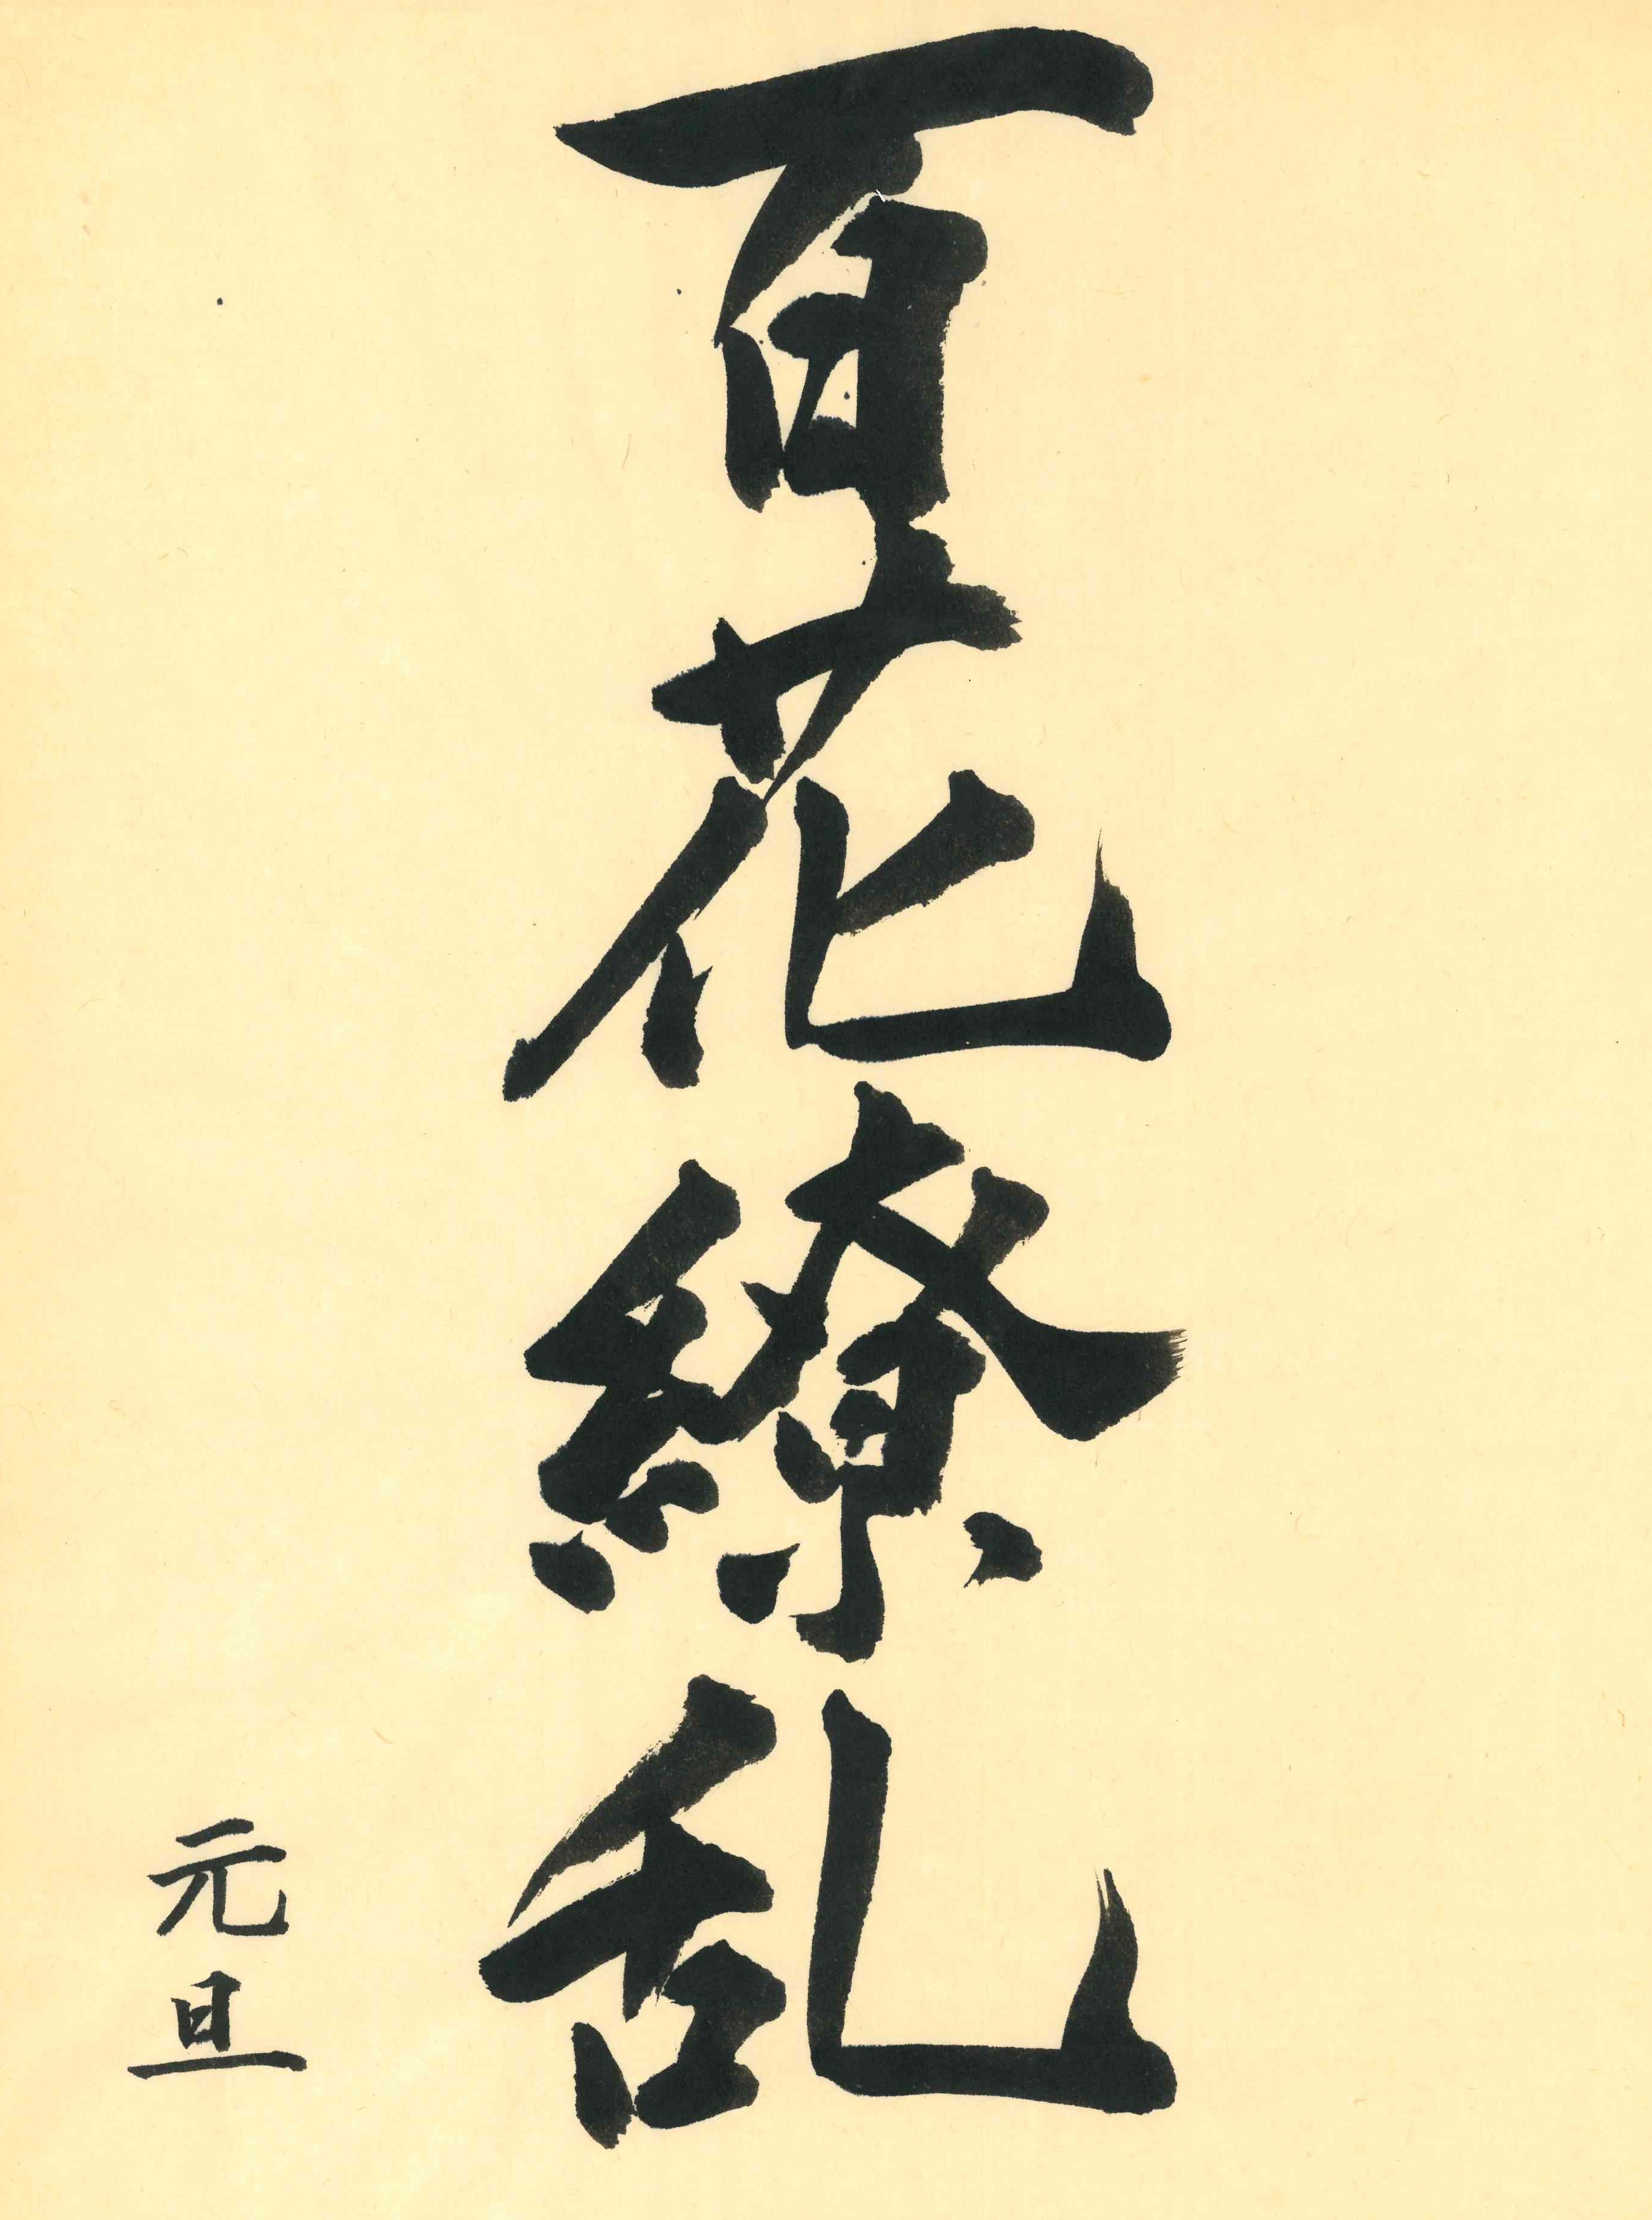 百花繚乱
元旦